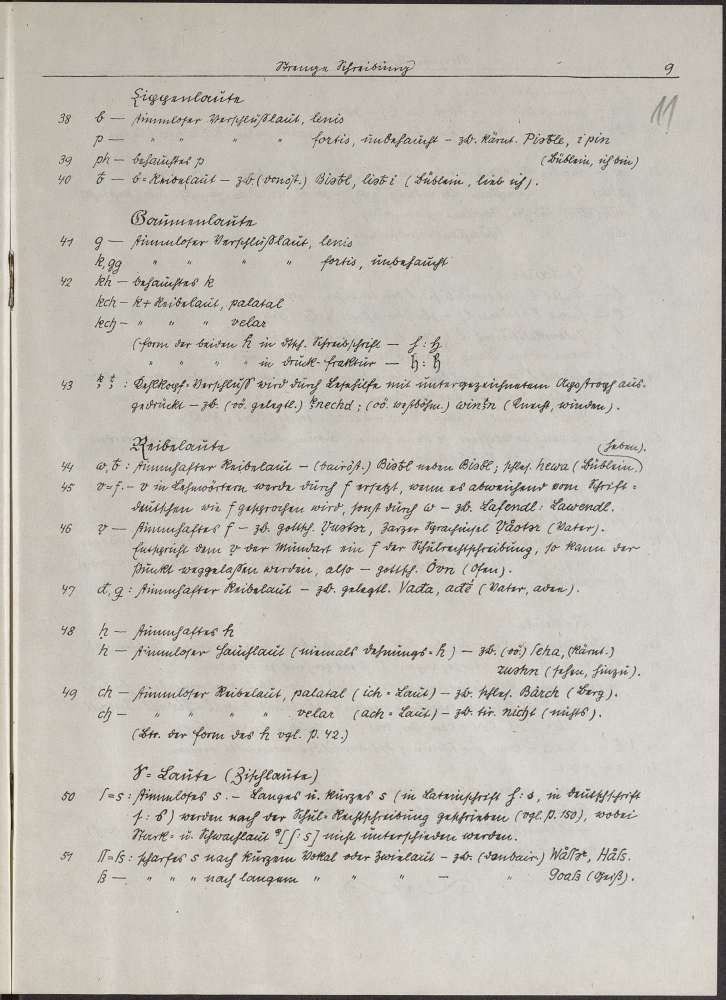 Strenge Schreibung 9
11
Lippenlaute
38 b — stimmloser Verschlußlaut, lenis
p — " " " " fortis, unbehaucht – zb. kärnt. Pisƀle, i pin
39 ph — behauchtes p (Büblein, ich bin)
40 ƀ — b=Reibelaut – zb. (donöst.) Bisƀl, lisƀ i (Büblein, lieb ich).
Gaumenlaute
41 g — stimmloser Verschlußlaut, lenis
k, gg " " " " fortis, unbehaucht
42 kh — behauchtes k
kch — k + Reibelaut, palatal
kch — " " " velar
(Form der beiden h in dtsch. Schreibschrift —
" " " " in Druck-Fraktur —
43 : Kehlkopf=Verschluß wird durch Lesehilfe mit untergezeichnetem Apostroph aus=
gedrückt – zb. (oö. gelegtl.) nechd; (oö. westböhm.) (Knecht, winden).
Reibelaute (heben).
44 w, ƀ : stimmhafter Reibelaut – (bairöst.) Bisƀl neben Bisbl; schles. hewa (Büblein,)
45 v=f. – v in Lehnwörtern werde durch f ersetzt, wenn es abweichend vom Schrift=
deutschen wie f gesprochen wird, sonst durch w – zb. Lafendl: Lawendl.
46 v — stimmhaftes f – zb. gottsch. Zarzer Sprachinsel (Vater).
Entspricht dem v der Mundart ein f der Schülrechtschreibung, so kann der
Punkt weggelassen werden, also – gottsch. Ovn (Ofen).
47 d, g : stimmhafter Reibelaut – zb. gelegtl. Vada, (Vater, aden).
48 h — stimmhaftes h
h — stimmloser Hauchlaut (niemals Dehnungs=h) – zb. (oö) seha, (kärnt.)
(sehen, hinzu).
49 ch — stimmloser Reibelaut, palatal (ich=Laut) – zb. schles. Bärch (Berg).
ch — " " " " velar (ach=Laut) – zb. tir. nicht (nichts).
(Btr. der Form des h vgl. P. 42.)
S=Laute (Zischlaute)
50 ſ=s : stimmloses s. – Langes u. kurzes s (in Lateinschrift ſ: s, in Deutschschrift
ſ: s) werden nach der Schul=Rechtschreibung geschrieben (vgl. P. 150), wobei
Stark= u. Schwachlaut [ſ: s] nicht unterschieden werden.
51 ſſ=ſs : scharfes s nach kurzem Vokal oder Zwielaut – zb. (donbair.) Håſs.
ß — " " " nach langem " " " — " Goaß (Geiß).